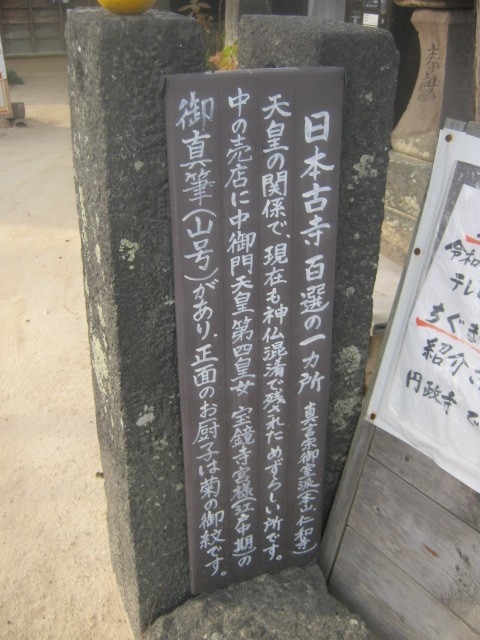 日本古寺百選の一カ所 真言宗御室派(本山、仁和寺)
天皇の関係で、現在も神仏混淆で残されためずらしい所です。
中の売店に中御門天皇第四皇女 宝鏡寺宮様(江戸中期)の
御真筆(山号)があり、正面のお厨子は菊の御紋です。
令和
テレ
ちぐま
紹介さ
円政寺で
奉献